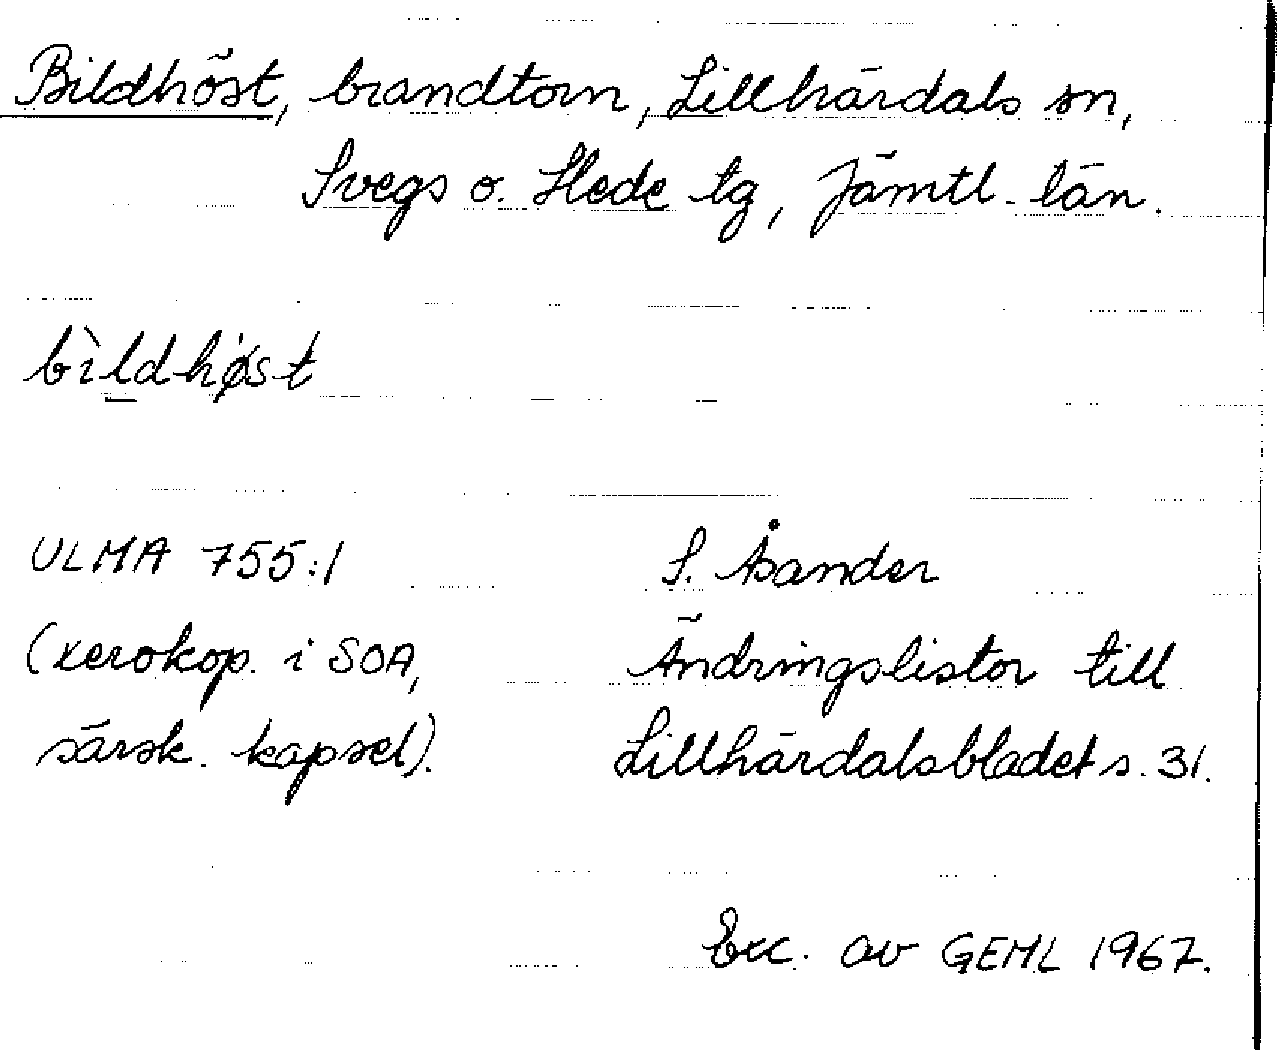 Bildhöst, brandtorn, Lillhärdals sn,
Svegs o. Hede tg, Jämtl. län.
bìldhø̀st
ULMA 755:1
(xerokop. i SOA,
särsk. kapsel).
S. Åsander
Ändringslistor till
Lillhärdalsbladet s. 31.
Exc. av GEML 1967.